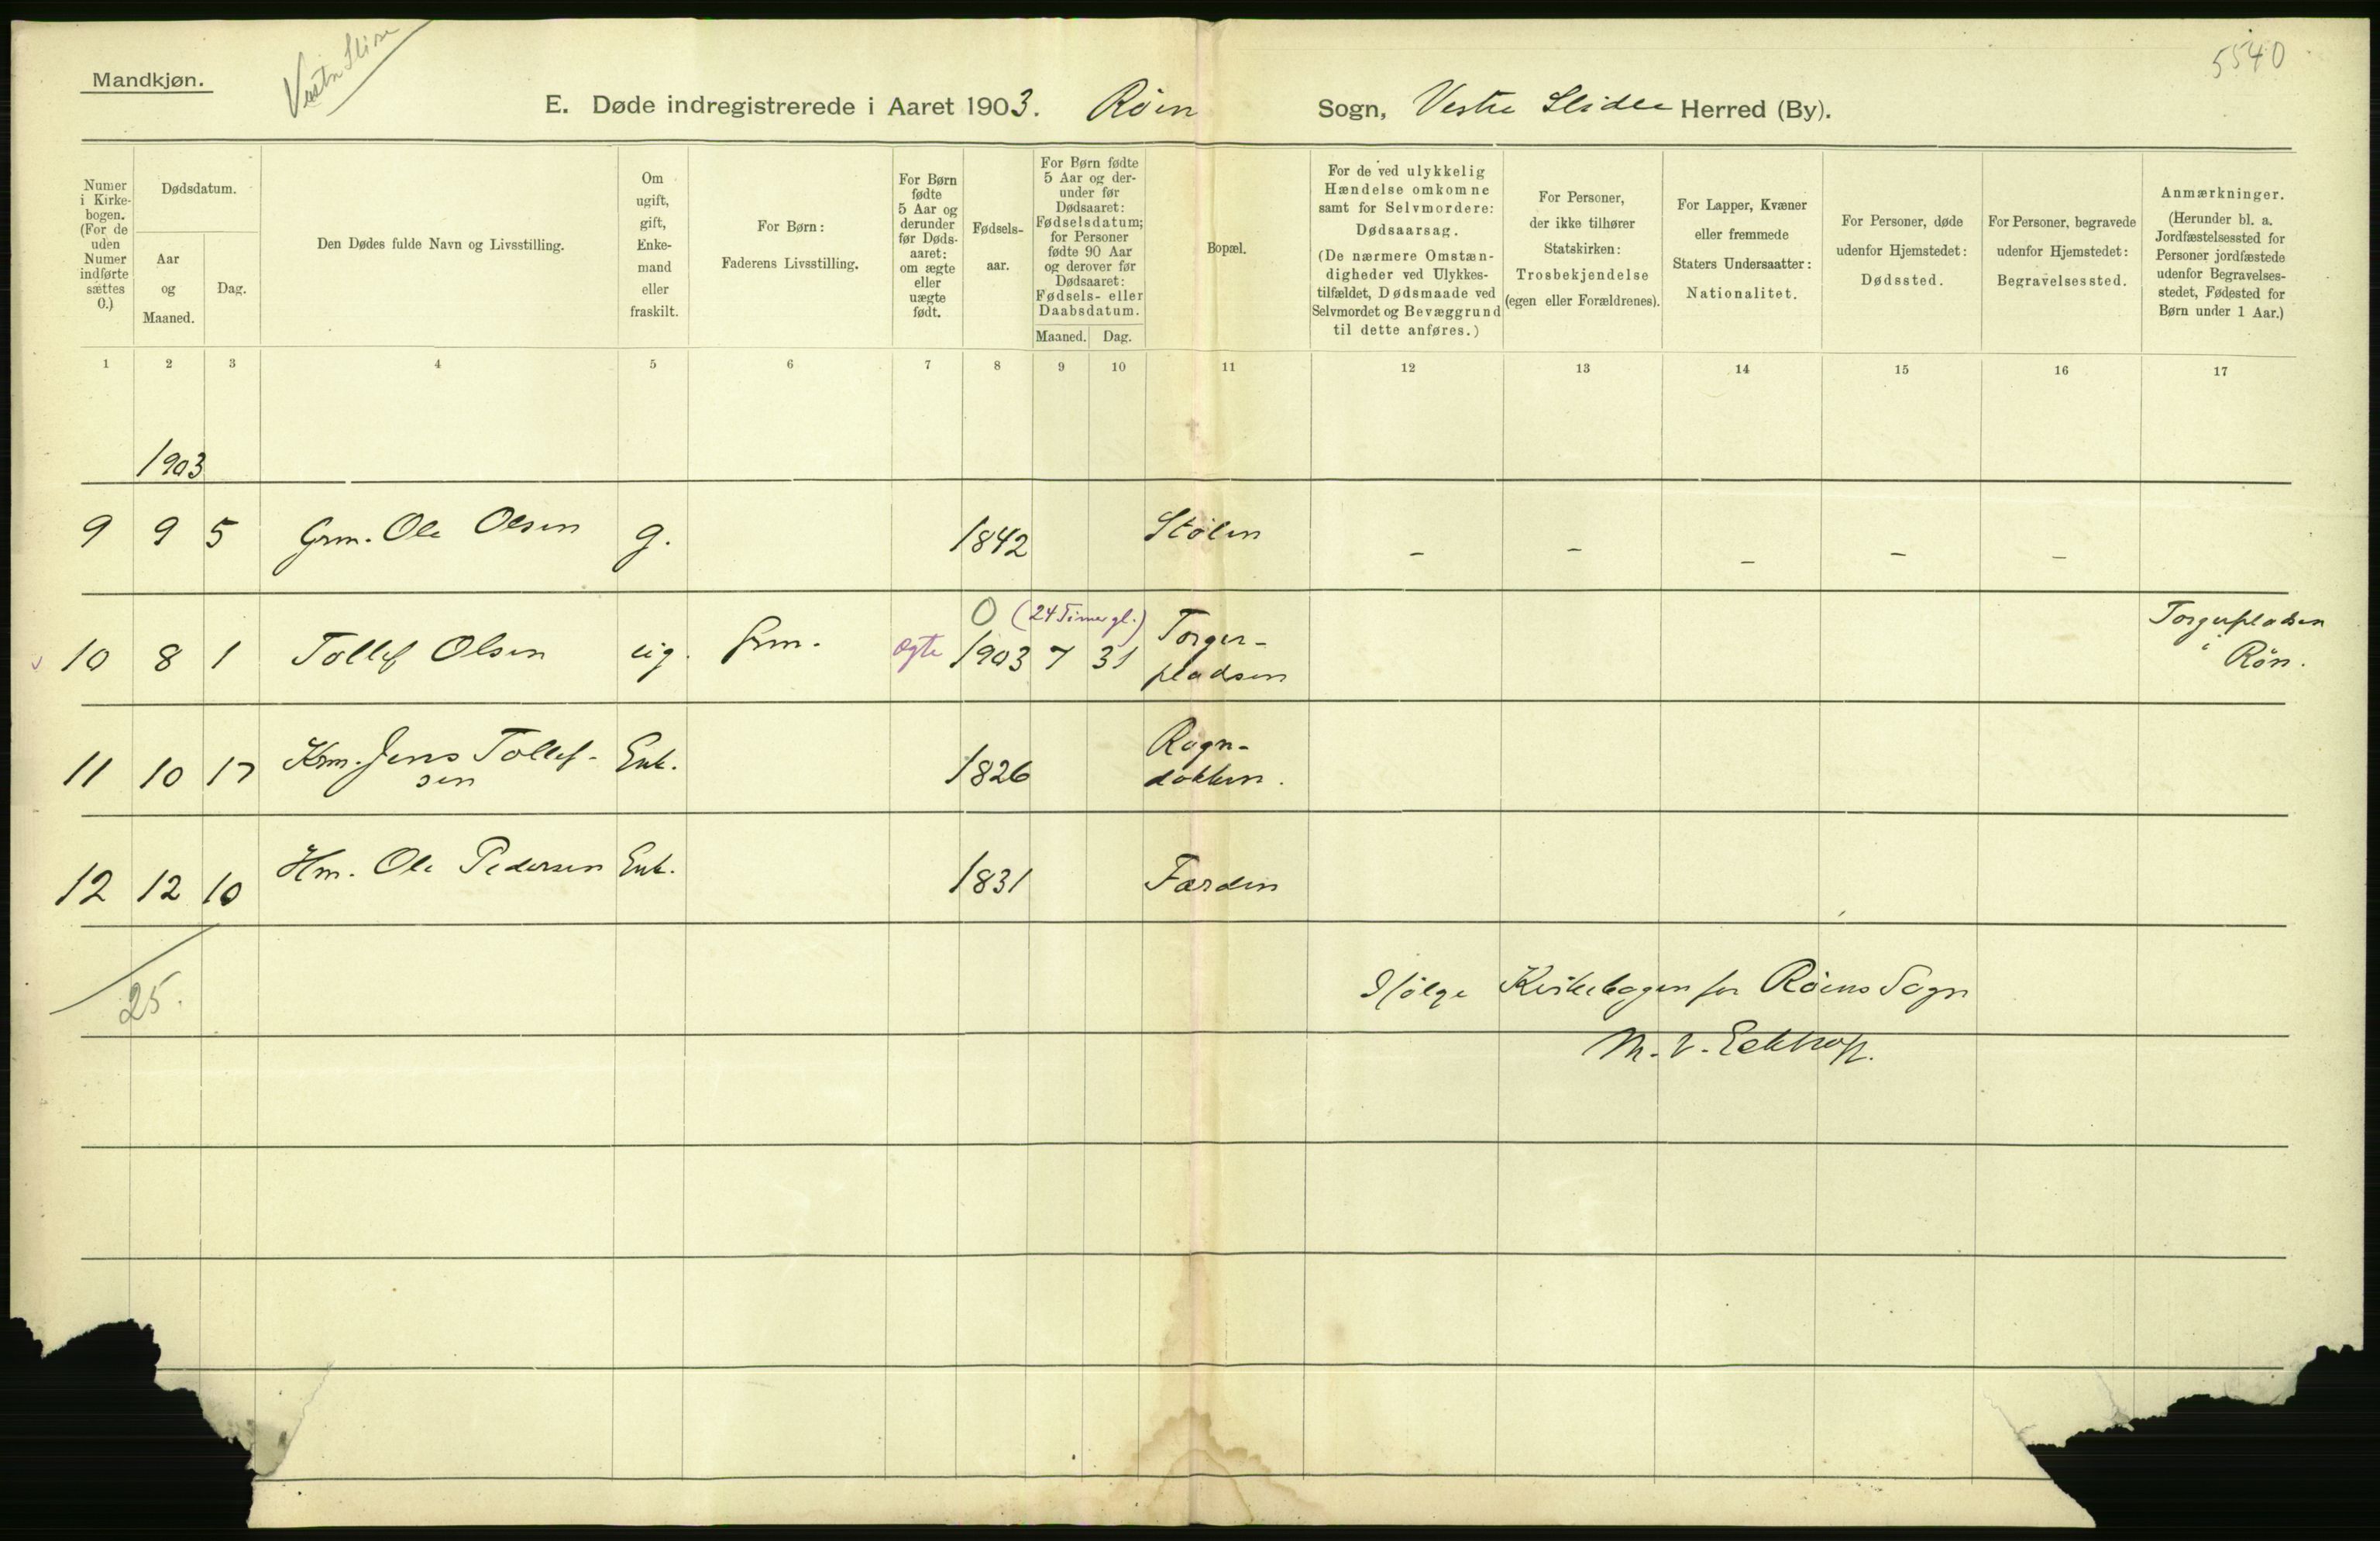 Mandkjøn.
5540
E. Døde indregistrerede i Aaret 1903. Røen Sogn, Vestre Slidre Herred (By).
Numer i Kirkebogen. (For de uden Numer indførte sættes 0.)
Dødsdatum.
Aar og Maaned.
Dag.
Den Dødes fulde Navn og Livsstilling.
Om ugift, gift, Enkemand eller fraskilt.
For Børn: Faderens Livsstilling.
For Børn fødte 5 Aar og derunder før Dødsaaret: om ægte eller uægte født.
Fødselsaar.
For Børn fødte 5 Aar og derunder før Dødsaaret: Fødselsdatum; for Personer fødte 90 Aar og derover før Dødsaaret: Fødsels- eller Daabsdatum.
Maaned. Dag.
Bopæl.
For de ved ulykkelig Hændelse omkomne samt for Selvmordere: Dødsaarsag.
(De nærmere Omstændigheder ved Ulykkestilfældet, Dødsmaade ved Selvmordet og Bevæggrund til dette anføres.)
For Personer, der ikke tilhører Statskirken: Trosbekjendelse (egen eller Forældrenes).
For Lapper, Kvæner eller fremmede Staters Undersaatter: Nationalitet.
For Personer, døde udenfor Hjemstedet: Dødssted.
For Personer, begravede udenfor Hjemstedet: Begravelsessted.
Anmærkninger.
(Herunder bl. a. Jordfæstelsessted for Personer jordfæstede udenfor Begravelsesstedet, Fødested for Børn under 1 Aar.)
1 2 3 4 5 6 7 8 9 10 11 12 13 14 15 16 17
1903
9 9 5 Grm. Ole Olsen g. 1842 Stølen - - - - -
0 (24 Timer gl.)
10 8 1 Tollef Olsen ug. Grm. ægte 1903 7 31 Torger-
pladsen
Torgerpladsen
i Røn.
11 10 17 Krm. Jens Tollef-
sen Enk. 1826 Rogn-
dokken.
12 12 10 Hm. Ole Pedersen Enk. 1831 Færden
25.
Ifølge Kirkebogen for Røens Sogn
M. V. Ecktroff.